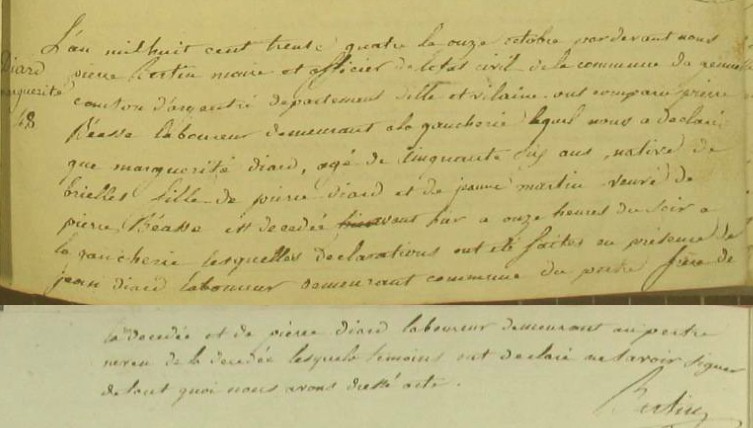 Diard
marguerité
48
L'an mil huit cent trente quatre le onze octobre par devant nous
pierre Bertin maire et officier de l'etat civil de la commune de
canton d'argentré departement d'ille et vilaine ont comparu pierre
Réasse laboureur demeurant a la gaucherie lequel nous a declaré
que marguerité Diard, agé de cinquante six ans, native de
Brielles fille de pierre Diard et de jeanne martin veuve de
pierre Réasse est decedée avant hier a onze heures du soir a
la gaucherie lesquelles declarations ont eté faites en présence de
jean Diard laboureur demeurant commune du pertre frère de
la decedée et de pierre Diard laboureur demeurant au pertre
neveu de la decedée lesquels temoins ont declaré ne savoir signer
de tout quoi nous avons dressé acte.
Bertin